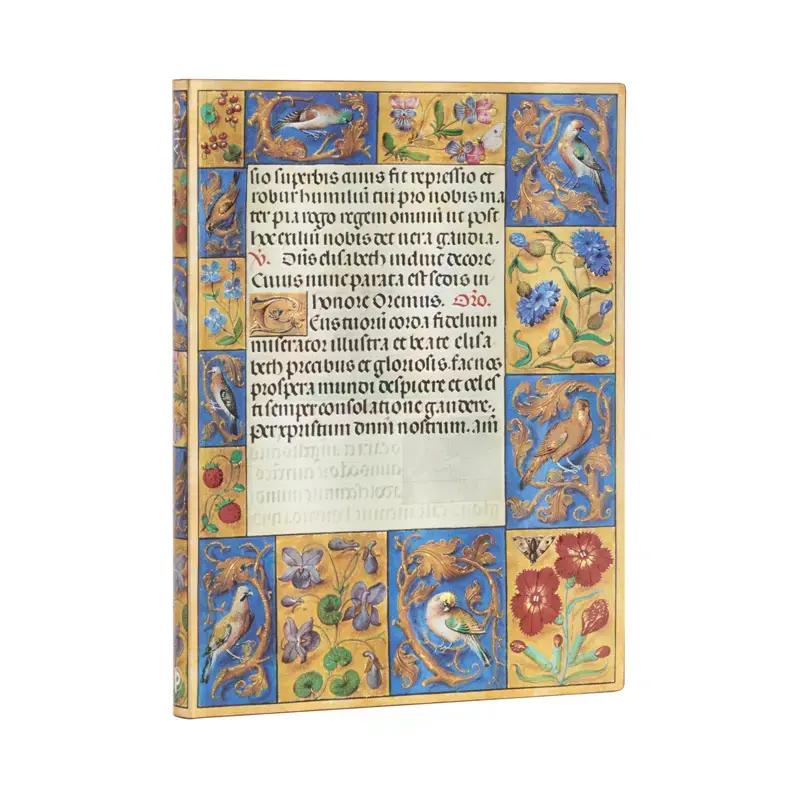 sio superbis auus fit repressio et
robur humiliū tui pro nobis ma
ter pia rogo regem omniuū ut post
hoc exiliū nobis det uera gaudia.
V. Dūs elisabeth induit decore
Cuius nunc parata est sedis in
honore Oremus. Oro.
Eus tuorū corda fidelium
miserator illustra et beate elisa
beth precibus et gloriosis. fac nos
prospera mundi despicere et celes
ti semper consolatione gaudere.
Per xpristum dnm̄ nostrum. am̄